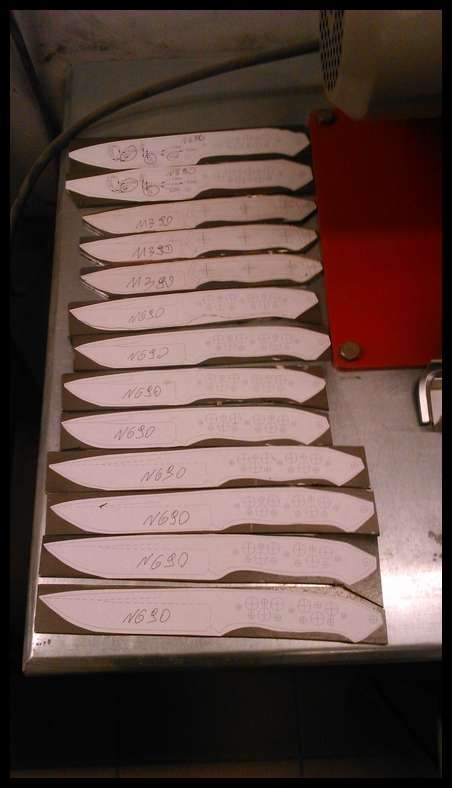 N690
N690
M390
M390
M390
N690
N690
N690
N690
N690
N690
N690
N690